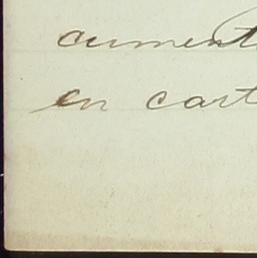 cument
en cart